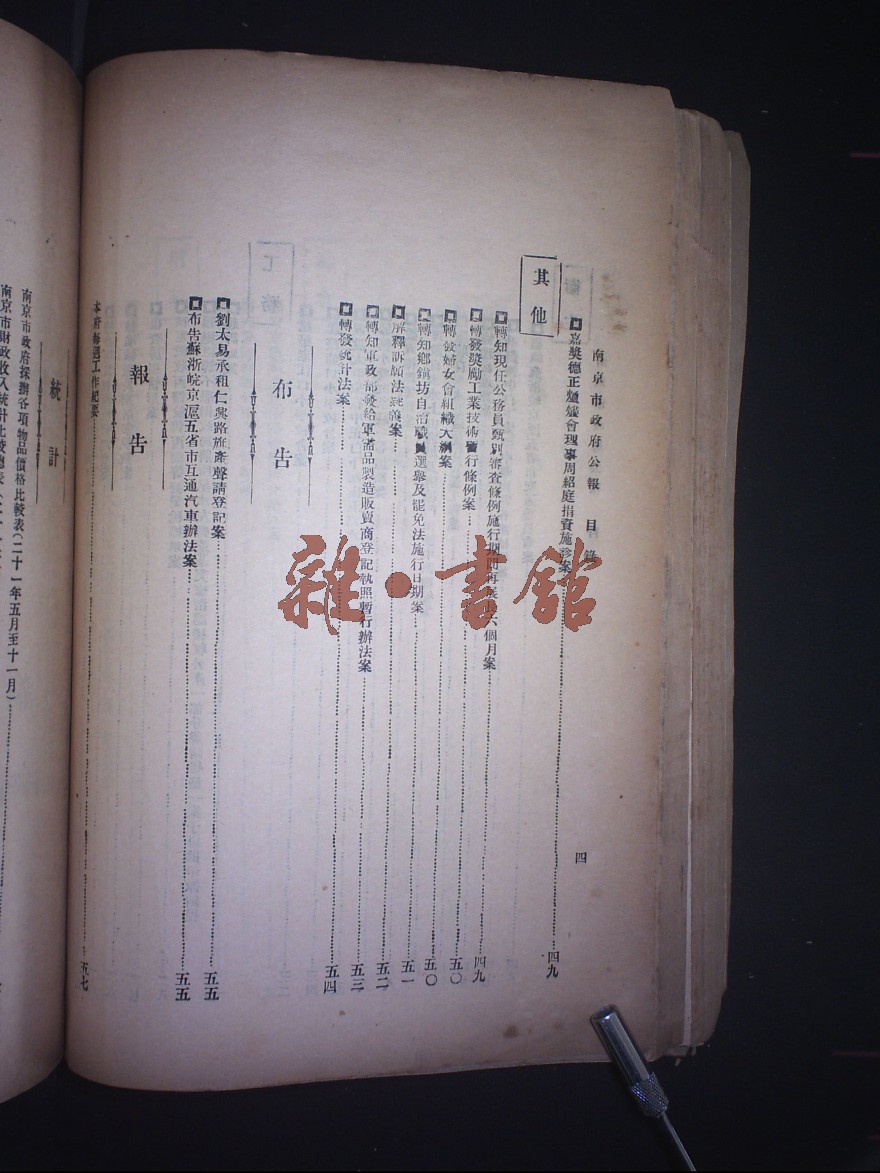 南京市政府公報 目錄 四
嘉獎德正爐爐會理事周紹庭捐資施診案 四九
其他
轉知現任公務員甄別審查條例施行期間再展長六個月案 四九
轉發獎勵工業技術暫行條例案 五〇
轉發婦女會組織大綱案 五〇
轉知鄉鎮坊自治職員選舉及罷免法施行日期案 五一
解釋訴願法疑義案 五二
轉知軍政部發給軍需品製造販賣商登記執照暫行辦法案 五三
轉發統計法案 五四
布告
劉太易承租仁興路旗產聲請登記案 五五
布告蘇浙皖京滬五省市互通汽車辦法案 五五
報告
本府每週工作紀要 五七
統計
南京市政府採辦各項物品價格比較表(二十一年五月至十一月)
南京市財政收入統計比較總表
雜·書館